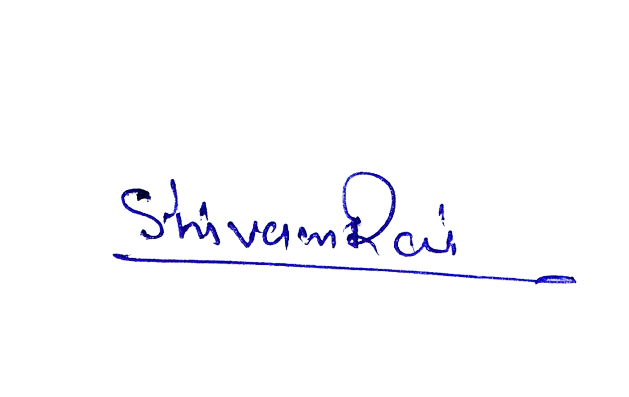 Shivam Rai